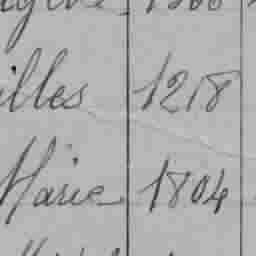 illes 1218
Marie 1804